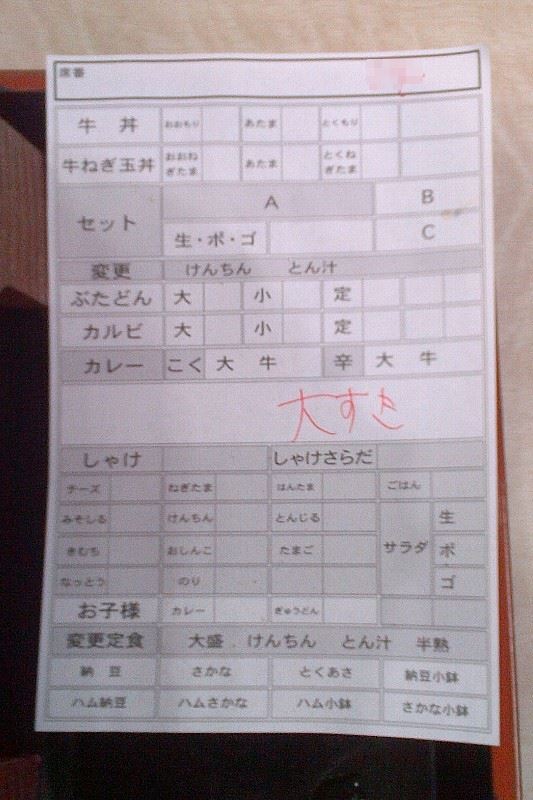 席番
牛丼 おおもり あたま とくもり
牛ねぎ玉丼 おおねぎたま あたま とくねぎたま
セット A B
生・ポ・ゴ C
変更 けんちん とん汁
ぶたどん 大 小 定
カルビ 大 小 定
カレー こく 大 牛 辛 大 牛
大すき
しゃけ しゃけさらだ
チーズ ねぎたま はんたま ごはん
みそしる けんちん とんじる サラダ 生
きむち おしんこ たまご ポ
なっとう のり ゴ
お子様 カレー ぎゅうどん
変更定食 大盛 けんちん とん汁 半熟
納豆 さかな とくあさ 納豆小鉢
ハム納豆 ハムさかな ハム小鉢 さかな小鉢